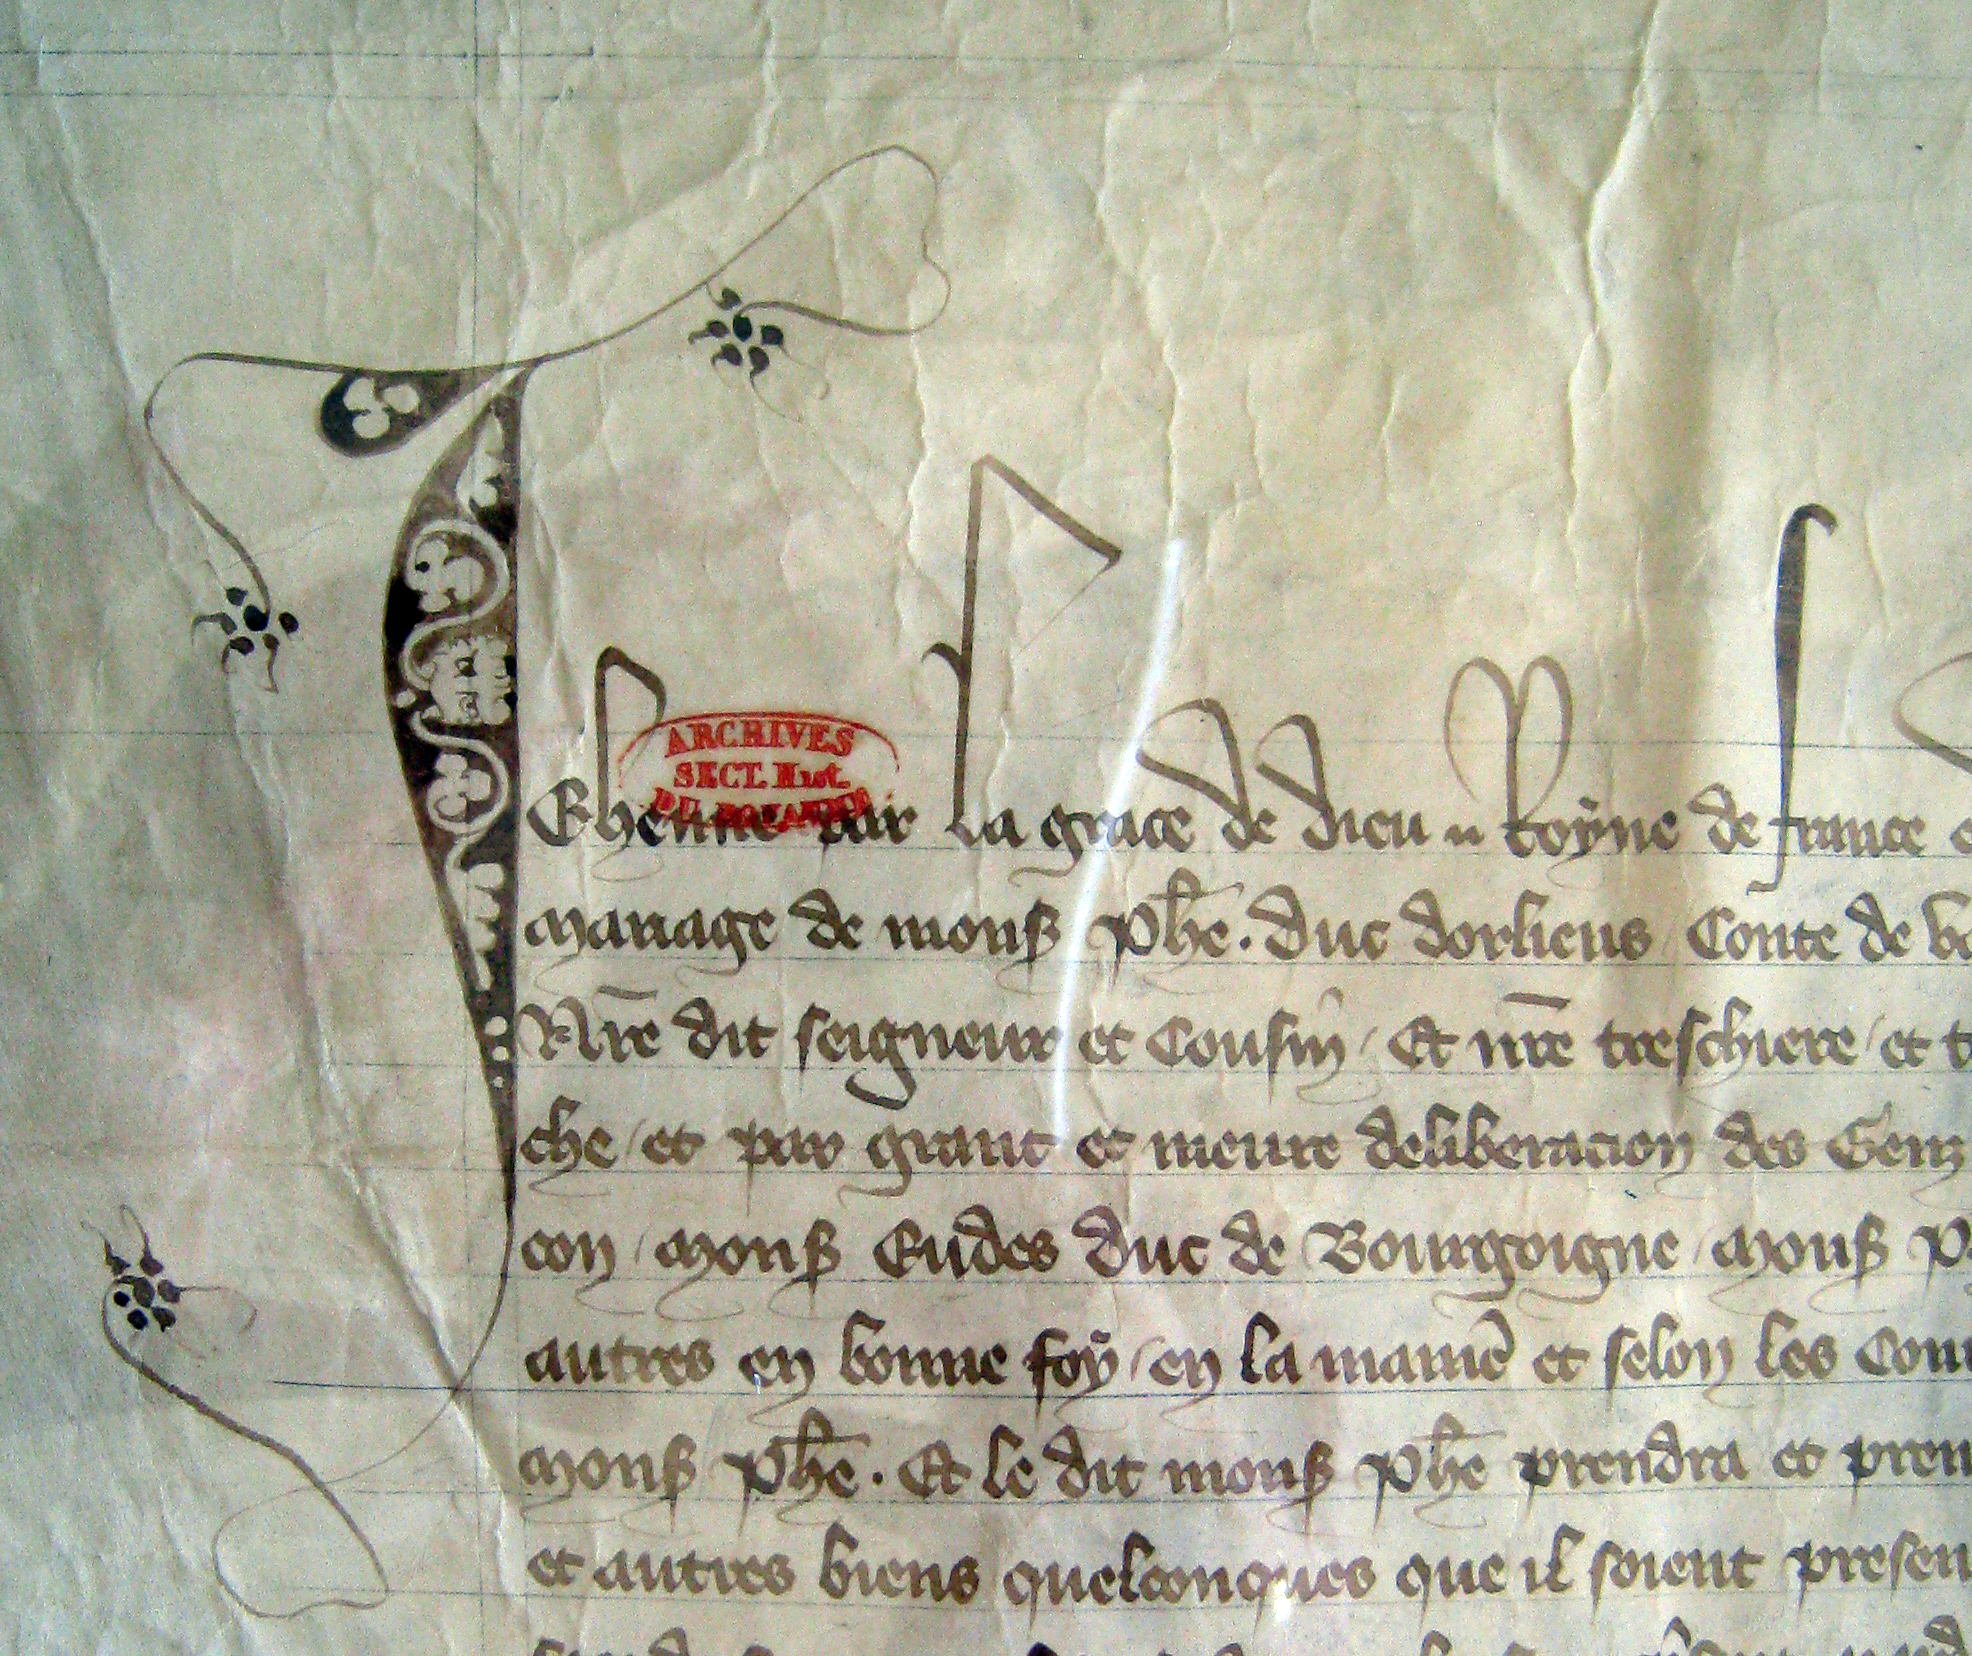 ARCHIVES
SECT. Hist.
DU ROYAUME
Jehenne par la grace de dieu Royne de france
mariage de mons Phe. duc dorliens Conte de
Nre dit seigneur et Cousin / Et nre treschiere / et
che / et par grant et meure deliberacion des Genz
con / mons Eudes duc de Bourgoigne / mons
autres en bonne foy / en la manie et selon les
mons Phe. Et le dit mons Phe prendra et
et autres biens quelconques que il soient